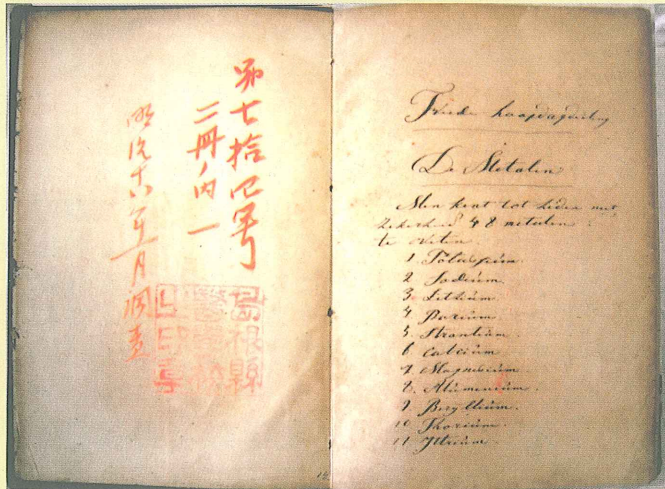 第七拾四号
二冊ノ内一
明治十八年一月調査
島根縣
Tweede hoofdafdeeling
De Metalen
Men kent tot heden met
zekerheid 48 metalen :
te weten.
1 Potassium.
2 Sodium.
3 Lithium.
4 Barium.
5 Strontium.
6 Calcium.
7 Magnesium.
8. Aluminium.
9 Beryllium.
10 Thorium.
11 Yttrium.